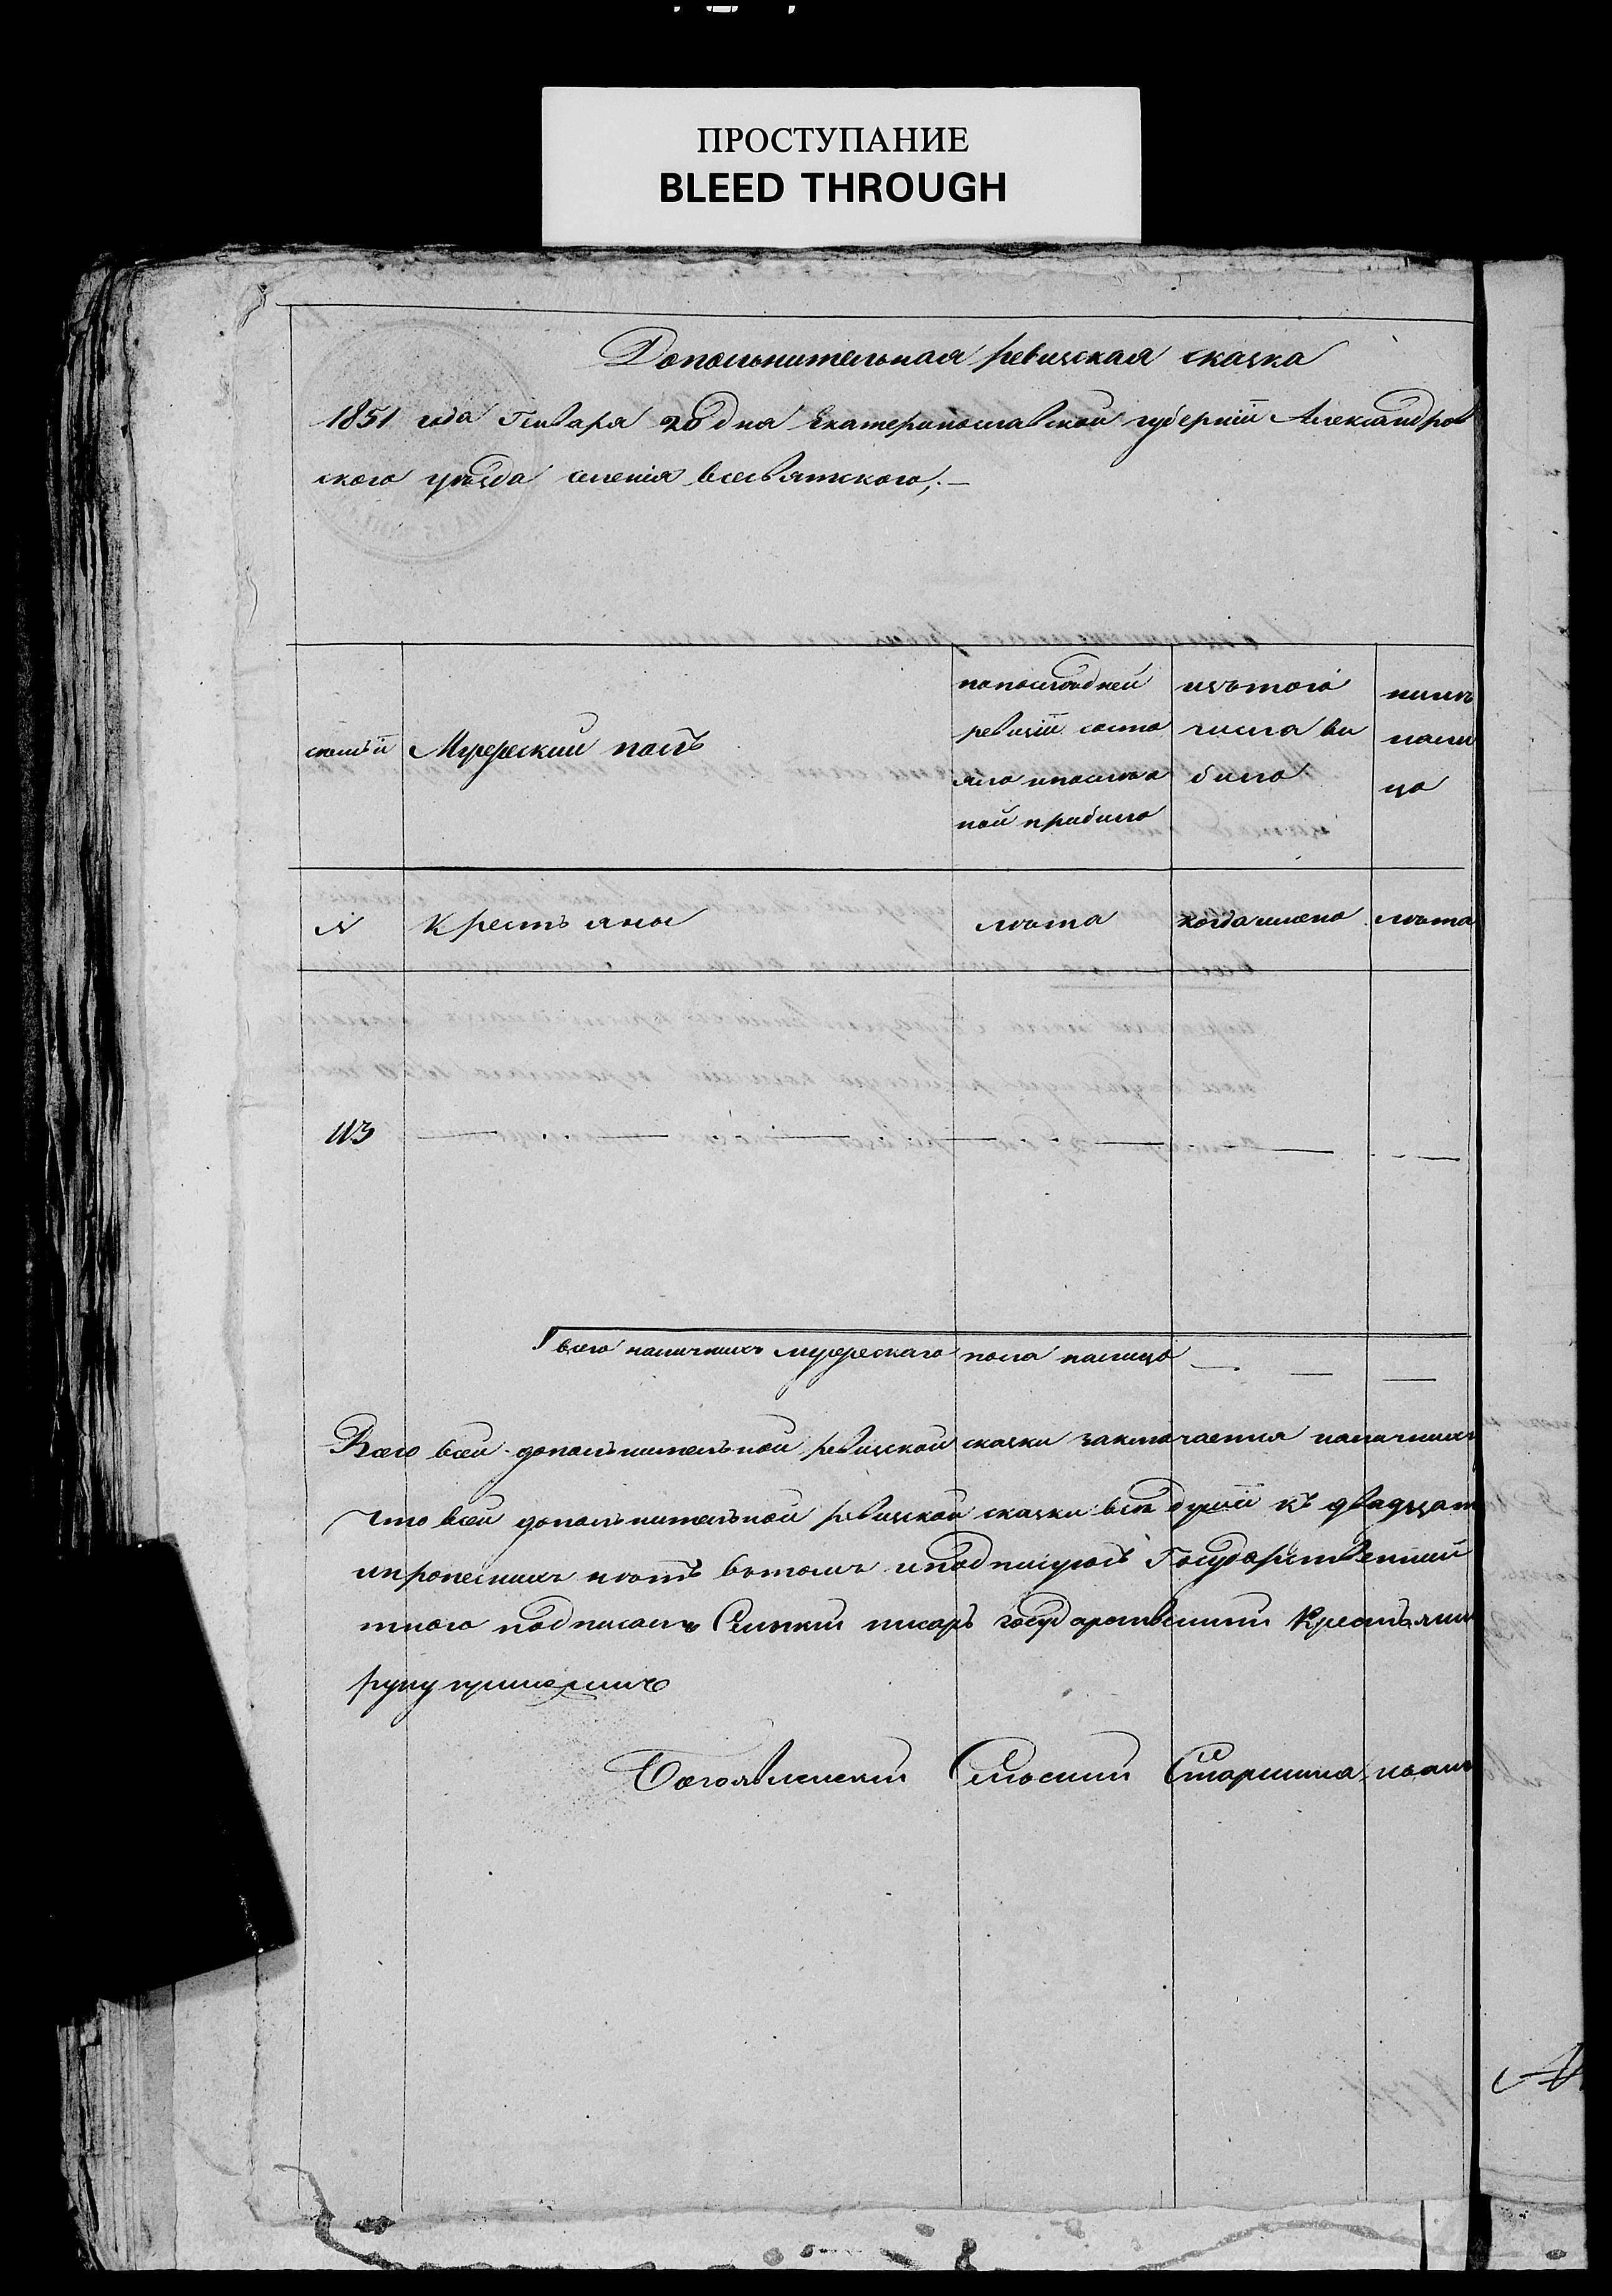 ПРОСТУПАНИЕ
BLEED THROUGH
Дополнительная ревизская сказка
1851 года Генваря 20 дня Екатеринославской губерніи Александров
ского уезда селенія Всесвятского;.—
семьи
Мужеский полъ
попоследней
ревизіи состо
яло ипоследо
ной прибило
изътого
числа ви
било
нынъ
нали
цо
№
Крестьяны
лѣта
когдаименно
лѣта
113
всего наличнихъ мужескаго пола налицо
Всего всей дополънителъной ревизской сказки заключается наличнихъ
Что всей дополънителъной ревизской сказки всѣ души къ двадцат
непропеснихъ нѣтъ вътомъ иподписуюсъ Государственний
того подписалъ Селский писаръ государственний Крестъянин
руку приложилъ
Богоявленский Селъский Старшина